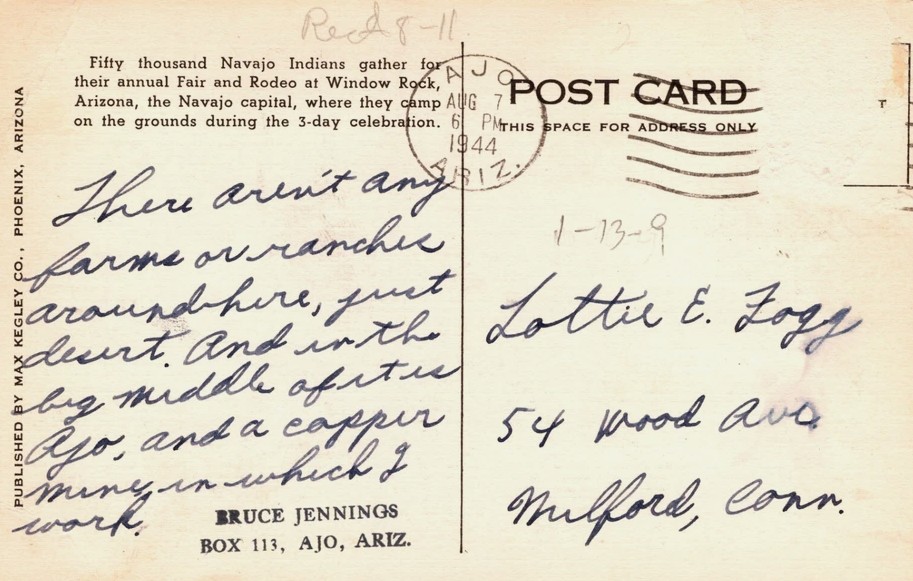 Rec'd 8-11
Fifty thousand Navajo Indians gather for
their annual Fair and Rodeo at Window Rock,
Arizona, the Navajo capital, where they camp
on the grounds during the 3-day celebration.
PUBLISHED BY MAX KEGLEY CO., PHOENIX, ARIZONA
There aren't any
farms or ranches
around here, just
desert. And in the
big middle of it is
Ajo, and a copper
mine in which I
work.
BRUCE JENNINGS
BOX 113, AJO, ARIZ.
AJO
AUG 7
6 PM
1944
ARIZ.
POST CARD
THIS SPACE FOR ADDRESS ONLY
1-13-9
Lottie E. Fogg
54 Wood Ave.
Milford, Conn.